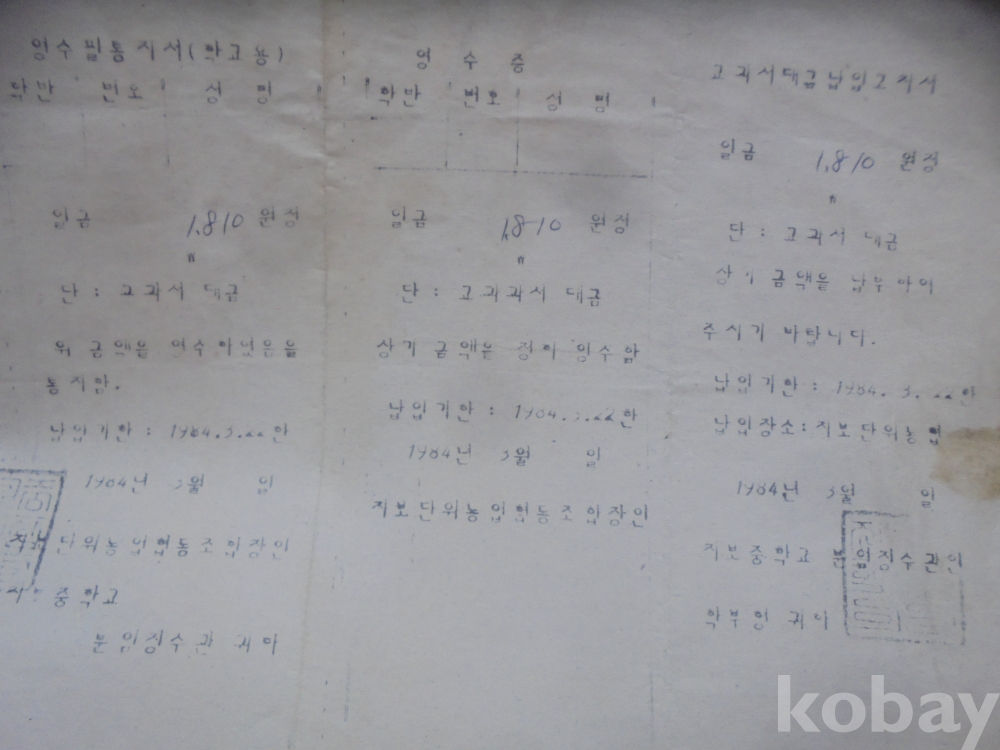 영수필통지서(학교용)
학반 번호 성명
일금 1,810 원정
〃
단 : 교과서 대금
위 금액을 영수하였음을
통지함.
납입기한 : 1984.3.22한
1984년 3월 일
지보단위농업협동조합장인
중학교
분임징수관 귀하
영 수 증
학반 번호 성명
일금 1,810 원정
〃
단 : 교과서 대금
상기 금액을 정히 영수함
납입기한 : 1984.3.22한
1984년 3월 일
지보단위농업협동조합장인
교과서대금납입고지서
일금 1,810 원정
〃
단 : 교과서 대금
상기 금액을 납부하여
주시기 바랍니다.
납입기한 : 1984.3.22한
납입장소 : 지보단위농협
1984년 3월 일
지보중학교 분임징수관인
학부형 귀하
kobay